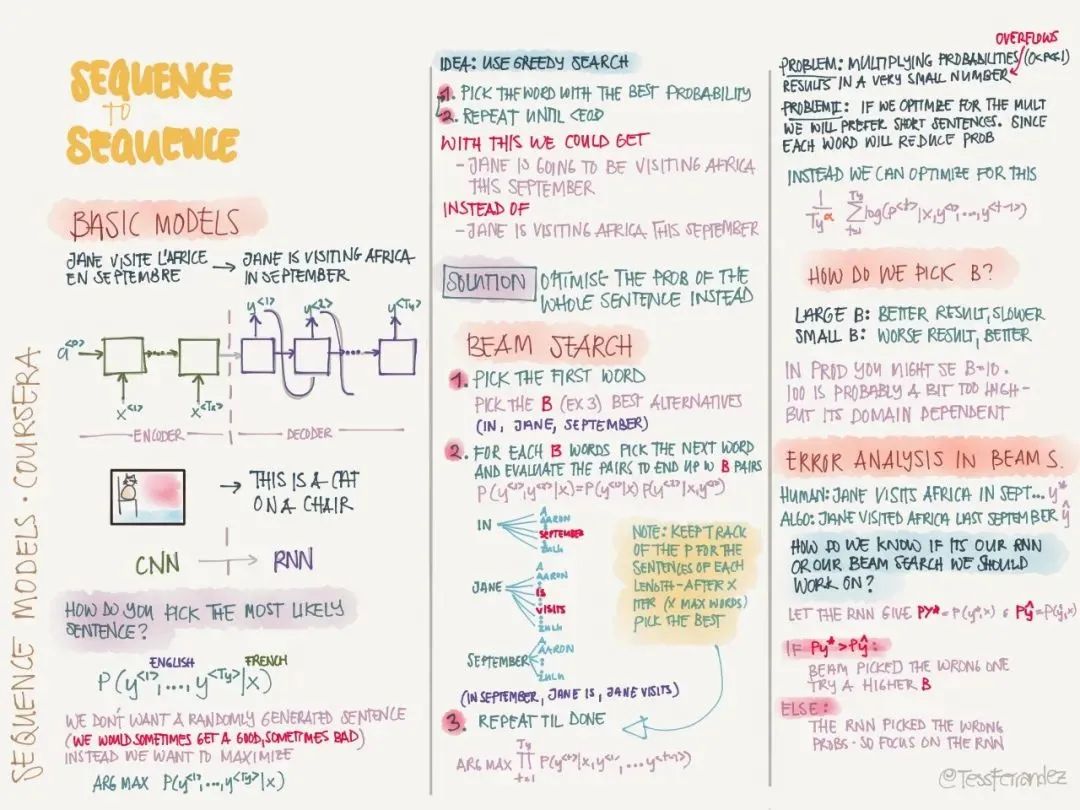 SEQUENCE
TO
SEQUENCE
BASIC MODELS
JANE VISITE L'AFRICE
EN SEPTEMBRE
→ JANE IS VISITING AFRICA
IN SEPTEMBER
y<1> y<2> y<Ty>
a<0>
x<1> x<Tx>
ENCODER DECODER
→ THIS IS A CAT
ON A CHAIR
CNN → RNN
HOW DO YOU PICK THE MOST LIKELY
SENTENCE?
ENGLISH FRENCH
P(y<1>,...,y<Ty>|x)
WE DON'T WANT A RANDOMLY GENERATED SENTENCE
(WE WOULD SOMETIMES GET A GOOD, SOMETIMES BAD)
INSTEAD WE WANT TO MAXIMIZE
ARG MAX P(y<1>,...,y<Ty>|x)
SEQUENCE MODELS · COURSERA
IDEA: USE GREEDY SEARCH
1. PICK THE WORD WITH THE BEST PROBABILITY
2. REPEAT UNTIL <EOD
WITH THIS WE COULD GET
- JANE IS GOING TO BE VISITING AFRICA
THIS SEPTEMBER
INSTEAD OF
- JANE IS VISITING AFRICA THIS SEPTEMBER
SOLUTION OPTIMISE THE PROB OF THE
WHOLE SENTENCE INSTEAD
BEAM SEARCH
1. PICK THE FIRST WORD
PICK THE B (EX 3) BEST ALTERNATIVES
(IN, JANE, SEPTEMBER)
2. FOR EACH B WORDS PICK THE NEXT WORD
AND EVALUATE THE PAIRS TO END UP W B PAIRS
P(y<1>,y<2>|x)=P(y<1>|x) P(y<2>|x,y<1>)
IN
A
AARON
SEPTEMBER
ZULU
JANE
A
AARON
IS
VISITS
ZULU
SEPTEMBER
A
AARON
ZULU
NOTE: KEEP TRACK
OF THE P FOR THE
SENTENCES OF EACH
LENGTH-AFTER X
ITER (X MAX WORDS)
PICK THE BEST
(IN SEPTEMBER, JANE IS, JANE VISITS)
3. REPEAT TIL DONE
ARG MAX Ty ∏ t=1 P(y<t>|x,y<1>,...y<t-1>)
OVERFLOWS
PROBLEM: MULTIPLYING PROBABILITIES (0<P≤1)
RESULTS IN A VERY SMALL NUMBER
PROBLEM II: IF WE OPTIMIZE FOR THE MULT
WE WILL PREFER SHORT SENTENCES. SINCE
EACH WORD WILL REDUCE PROB
INSTEAD WE CAN OPTIMIZE FOR THIS
1/Ty^α Ty ∑ t=1 log(P<t>|x,y<1>,...,y<t-1>)
HOW DO WE PICK B?
LARGE B: BETTER RESULT, SLOWER
SMALL B: WORSE RESULT, BETTER
IN PROD YOU MIGHT SE B=10.
100 IS PROBABLY A BIT TOO HIGH-
BUT ITS DOMAIN DEPENDENT
ERROR ANALYSIS IN BEAM S.
HUMAN: JANE VISITS AFRICA IN SEPT... y*
ALGO: JANE VISITED AFRICA LAST SEPTEMBER ŷ
HOW DO WE KNOW IF ITS OUR RNN
OR OUR BEAM SEARCH WE SHOULD
WORK ON?
LET THE RNN GIVE Py*=P(y*,x) & Pŷ=P(ŷ,x)
IF Py*>Pŷ:
BEAM PICKED THE WRONG ONE
TRY A HIGHER B
ELSE:
THE RNN PICKED THE WRONG
PROBS - SO FOCUS ON THE RNN
@TessFerrandez